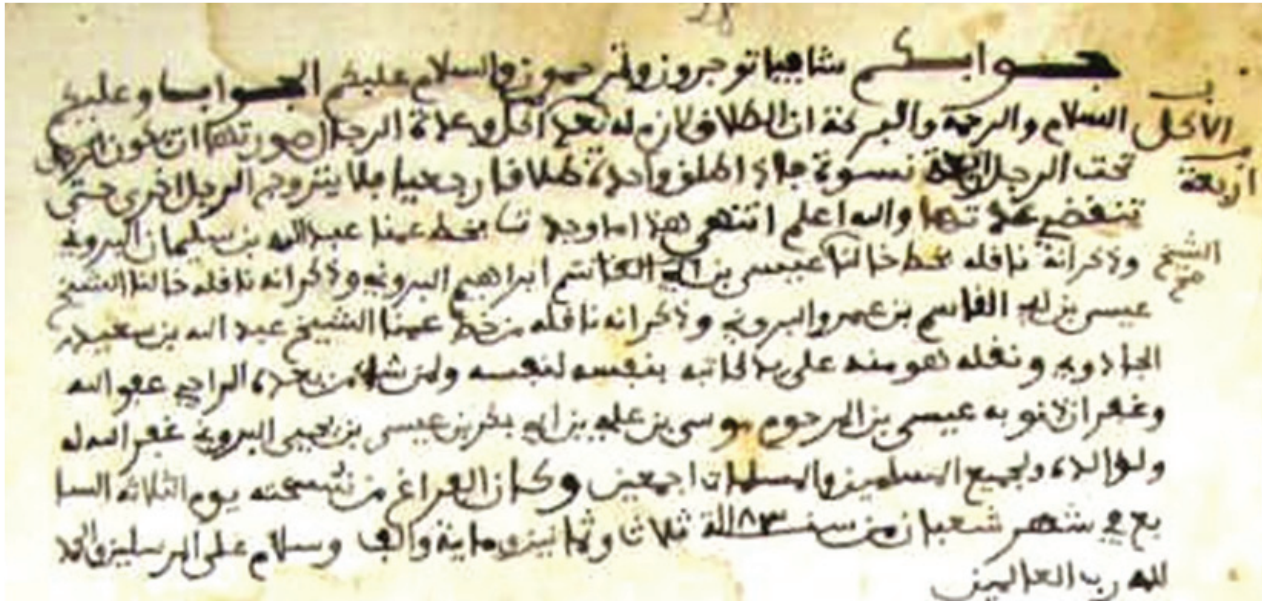 28
جوابكم شافيا توجروز وترحموز والسلام عليكم الجواب وعليكم
السلام والرحمة والبركة ان الطلاق لازم له بعد الحل وعدة الرجل صورتها ان تكون
تحت الرجل اربعة نسوة فاذا طلق واحدة طلاقا رجعيا فلا يتزوج الرجل اخرى حتى
تنقضي عدتها والله اعلم انتهى هذا ما وجدنا بخط عمنا عبد الله بن سليمان الباروني
وذكر انه ناقله بخط خالنا عيسى بن ابي القاسم ابراهيم البروني وذكر انه ناقله خالنا الشيخ
عيسى بن ابي القاسم بن عمرو البروني وذكر انه ناقله من خط عمنا الشيخ عبد الله بن سعيد
الجادوي ونقله هو منه على يد كاتبه بنفسه لنفسه ولمن شاء من بعده الراجي عفو الله
وغفران ذنوبه عيسى بن المرحوم موسى بن علي بن ابي بكر بن عيسى بن يحيى البروني غفر الله له
ولوالده ولجميع المسلمين والمسلمات اجمعين وكان الفراغ من نسخته يوم الثلاثة السا
بع في شهر شعبان من سنة ثلاثا وثمانين ومايئة والف وسلام على المرسلين والحمد
لله رب العالمين
الاكل
اربعة
الشيخ
صح